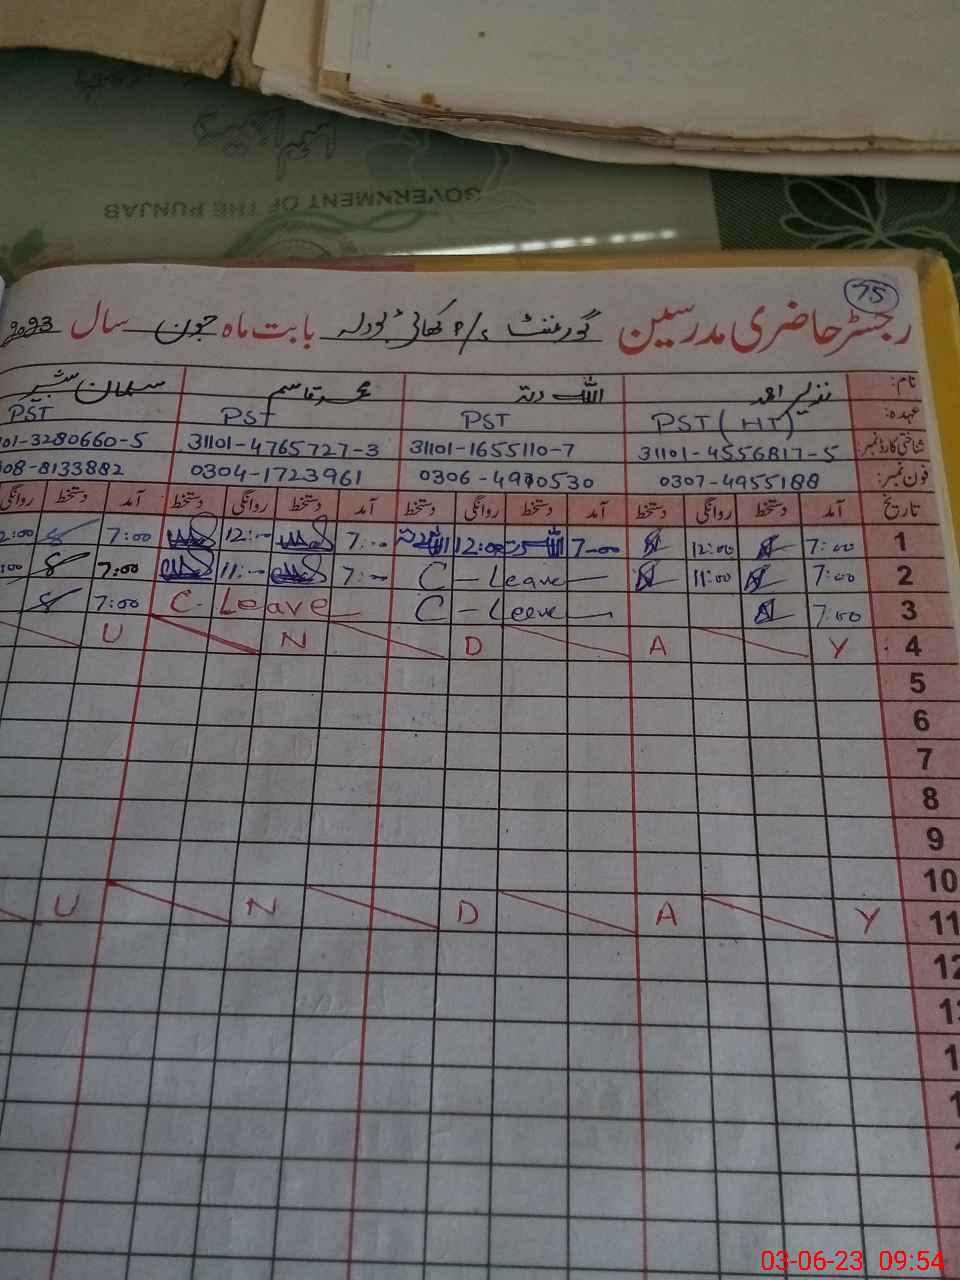 GOVERNMENT OF THE PUNJAB
75
رجسٹر حاضری مدرسین گورنمنٹ P/S بابت ماہ جون سال 2023
نام: نذیر احمد اللہ دتہ محمد قاسم سلمان بشیر
عہدہ: PST (HT) PST PST PST
شناختی کارڈ نمبر: 31101-4556817-5 31101-1655110-7 31101-4765727-3 101-3280660-5
فون نمبر: 0307-4955188 0306-4970530 0304-1723961 08-8133882
تاریخ آمد دستخط روانگی دستخط آمد دستخط روانگی دستخط آمد دستخط روانگی دستخط آمد دستخط روانگی
1 7:00 12:00 7-00 اللہ دتہ 12:00 اللہ دتہ 7:00 12:00 7:00 2:00
2 7:00 11:00 C-Leave 7:00 11:00 7:00 :00
3 7:00 C-Leeve C-Leave 7:00
4 Y A D N U
5
6
7
8
9
10
11 Y A D N U
12
1
1
1
03-06-23 09:54